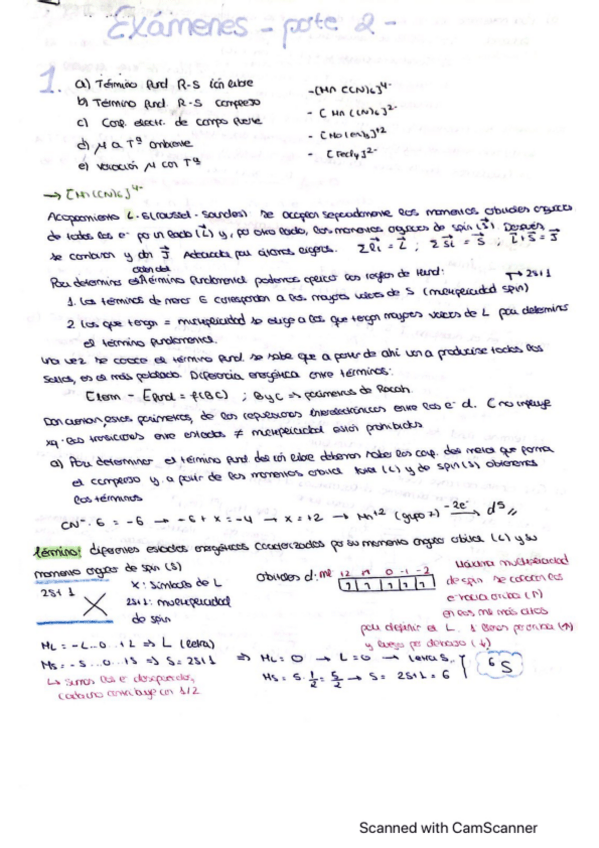 Exámenes - parte 2 -
1.
a) Término fund R-S ión libre
b) Término fund. R-S complejo
c) Conf. electr. de campo fuerte
d) μ a Tª ambiente
e) variación μ con Tª
- [Mn(CN)6]4-
- [Mn(CN)6]2-
- [Ho(en)3]+2
- [FeCl4]2-
→ [Mn(CN)6]4-
Acoplamiento L-S (Roussel-Saunders) Se acoplan separadamente los momentos orbitales angulares
de todos los e- por un lado (L) y, por otro lado, los momentos angulares de spin (S). Después
se combinan y dan J. Adecuada para átomos ligeros. Σli = L ; Σsi = S ; L+S = J
Para determinar el término fundamental podemos aplicar las reglas de Hund:
ión del
↱ 2S+1
1. Los términos de menor E corresponden a los mayores valores de S (multiplicidad spin)
2 Los que tengan = multiplicidad se elige a los que tengan mayores valores de L para determinar
el término fundamental.
Una vez se conoce el término fund. se sabe que a partir de ahí van a producirse todos los
saltos, es el más poblado. Diferencia energética entre términos:
Eterm - Efund = f(B,C) ; B y C => parámetros de Racah.
Dan cuenta, estos parámetros, de las repulsiones interelectrónicas entre los e- d. C no influye
xq las transiciones entre estados ≠ multiplicidad están prohibidas
a) Para determinar el término fund del ión libre debemos saber la conf. del metal que forma
el complejo y a partir de los momentos orbital total (L) y de spin (S) obtenemos
los términos
CN- · 6 = -6 → -6 + x = -4 → x = +2 → Mn+2 (grupo 7) -2e-→ d5
término: diferentes estados energéticos caracterizados por su momento angular orbital (L) y su
momento angular de spin (S)
2S+1 X
X: Símbolo de L
2S+1: multiplicidad
de spin
Orbitales d: ml +2 +1 0 -1 -2
↿ ↿ ↿ ↿ ↿
Máxima multiplicidad
de spin se colocan los
e- hacia arriba (↑)
en los ml más altos
para definir el L. 1º llenas por arriba (↑)
y luego por debajo (↓)
ML = -L...0...+L => L (letra)
MS = -S...0...+S => S = 2S+1
↳ sumas los e- desapareados,
cada uno contribuye con 1/2
=> ML = 0 → L = 0 → Letra S
MS = 5 · 1/2 = 5/2 → S = 2S+1 = 6
6S
Scanned with CamScanner